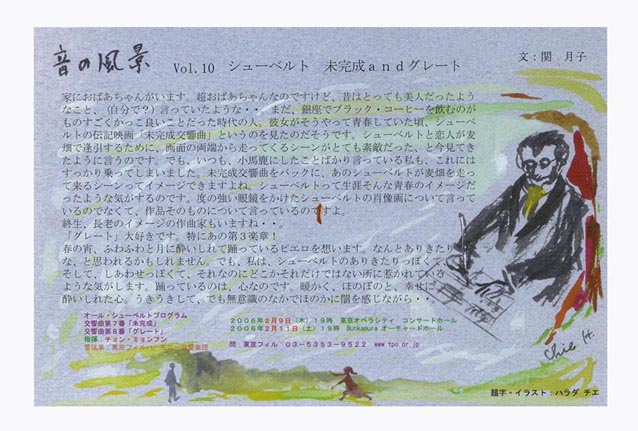 音の風景
Vol.10 シューベルト 未完成andグレート
文:関 月子
家におばあちゃんがいます。超おばあちゃんなのですけど、昔はとっても美人だったよう
なこと、(自分で?)言っていたような・・ まだ、銀座でブラック・コーヒーを飲むのが
ものすごくかっこ良いことだった時代の人。彼女がそうやって青春していた頃、シューベ
ルトの伝記映画「未完成交響曲」というのを見たのだそうです。シューベルトと恋人が麦
畑で逢引するために、画面の両端から走ってくるシーンがとても素敵だった、と今見てき
たように言うのです。でも、いつも、小馬鹿にしたことばかり言っている私も、これには
すっかり乗ってしまいました。未完成交響曲をバックに、あのシューベルトが麦畑を走っ
て来るシーンってイメージできますよね。シューベルトって生涯そんな青春のイメージだ
ったような気がするのです。度の強い眼鏡をかけたシューベルトの肖像画について言って
いるのでなくて、作品そのものについて言っているのですよ。
終生、長老のイメージの作曲家もいますね・・・
「グレート」大好きです。特にあの第3楽章!
春の宵、ふわふわと月に酔いしれて踊っているピエロを想います。なんとありきたり
な、と思われるかもしれません。でも、私は、シューベルトのありきたりっぽくて、
そして、しあわせっぽくて、それなのにどこかそれだけではない所に惹かれている
ような気がします。踊っているのは、心なのです。暖かく、ほのぼのと、幸せに
酔いしれた心。うきうきして、でも無意識のなかでほのかに闇を感じながら・・
オール・シューベルトプログラム
交響曲第7番「未完成」
2006年2月9日(木)19時 東京オペラシティ コンサートホール
交響曲第8番「グレート」
2006年2月11日(土)19時 Bunkamura オーチャードホール
指揮:チョン・ミョンフン
管弦楽:東京フィル
問 東京フィル 03-5353-9522 www.tpo.or.jp
Chie H.
題字・イラスト:ハラダ チエ